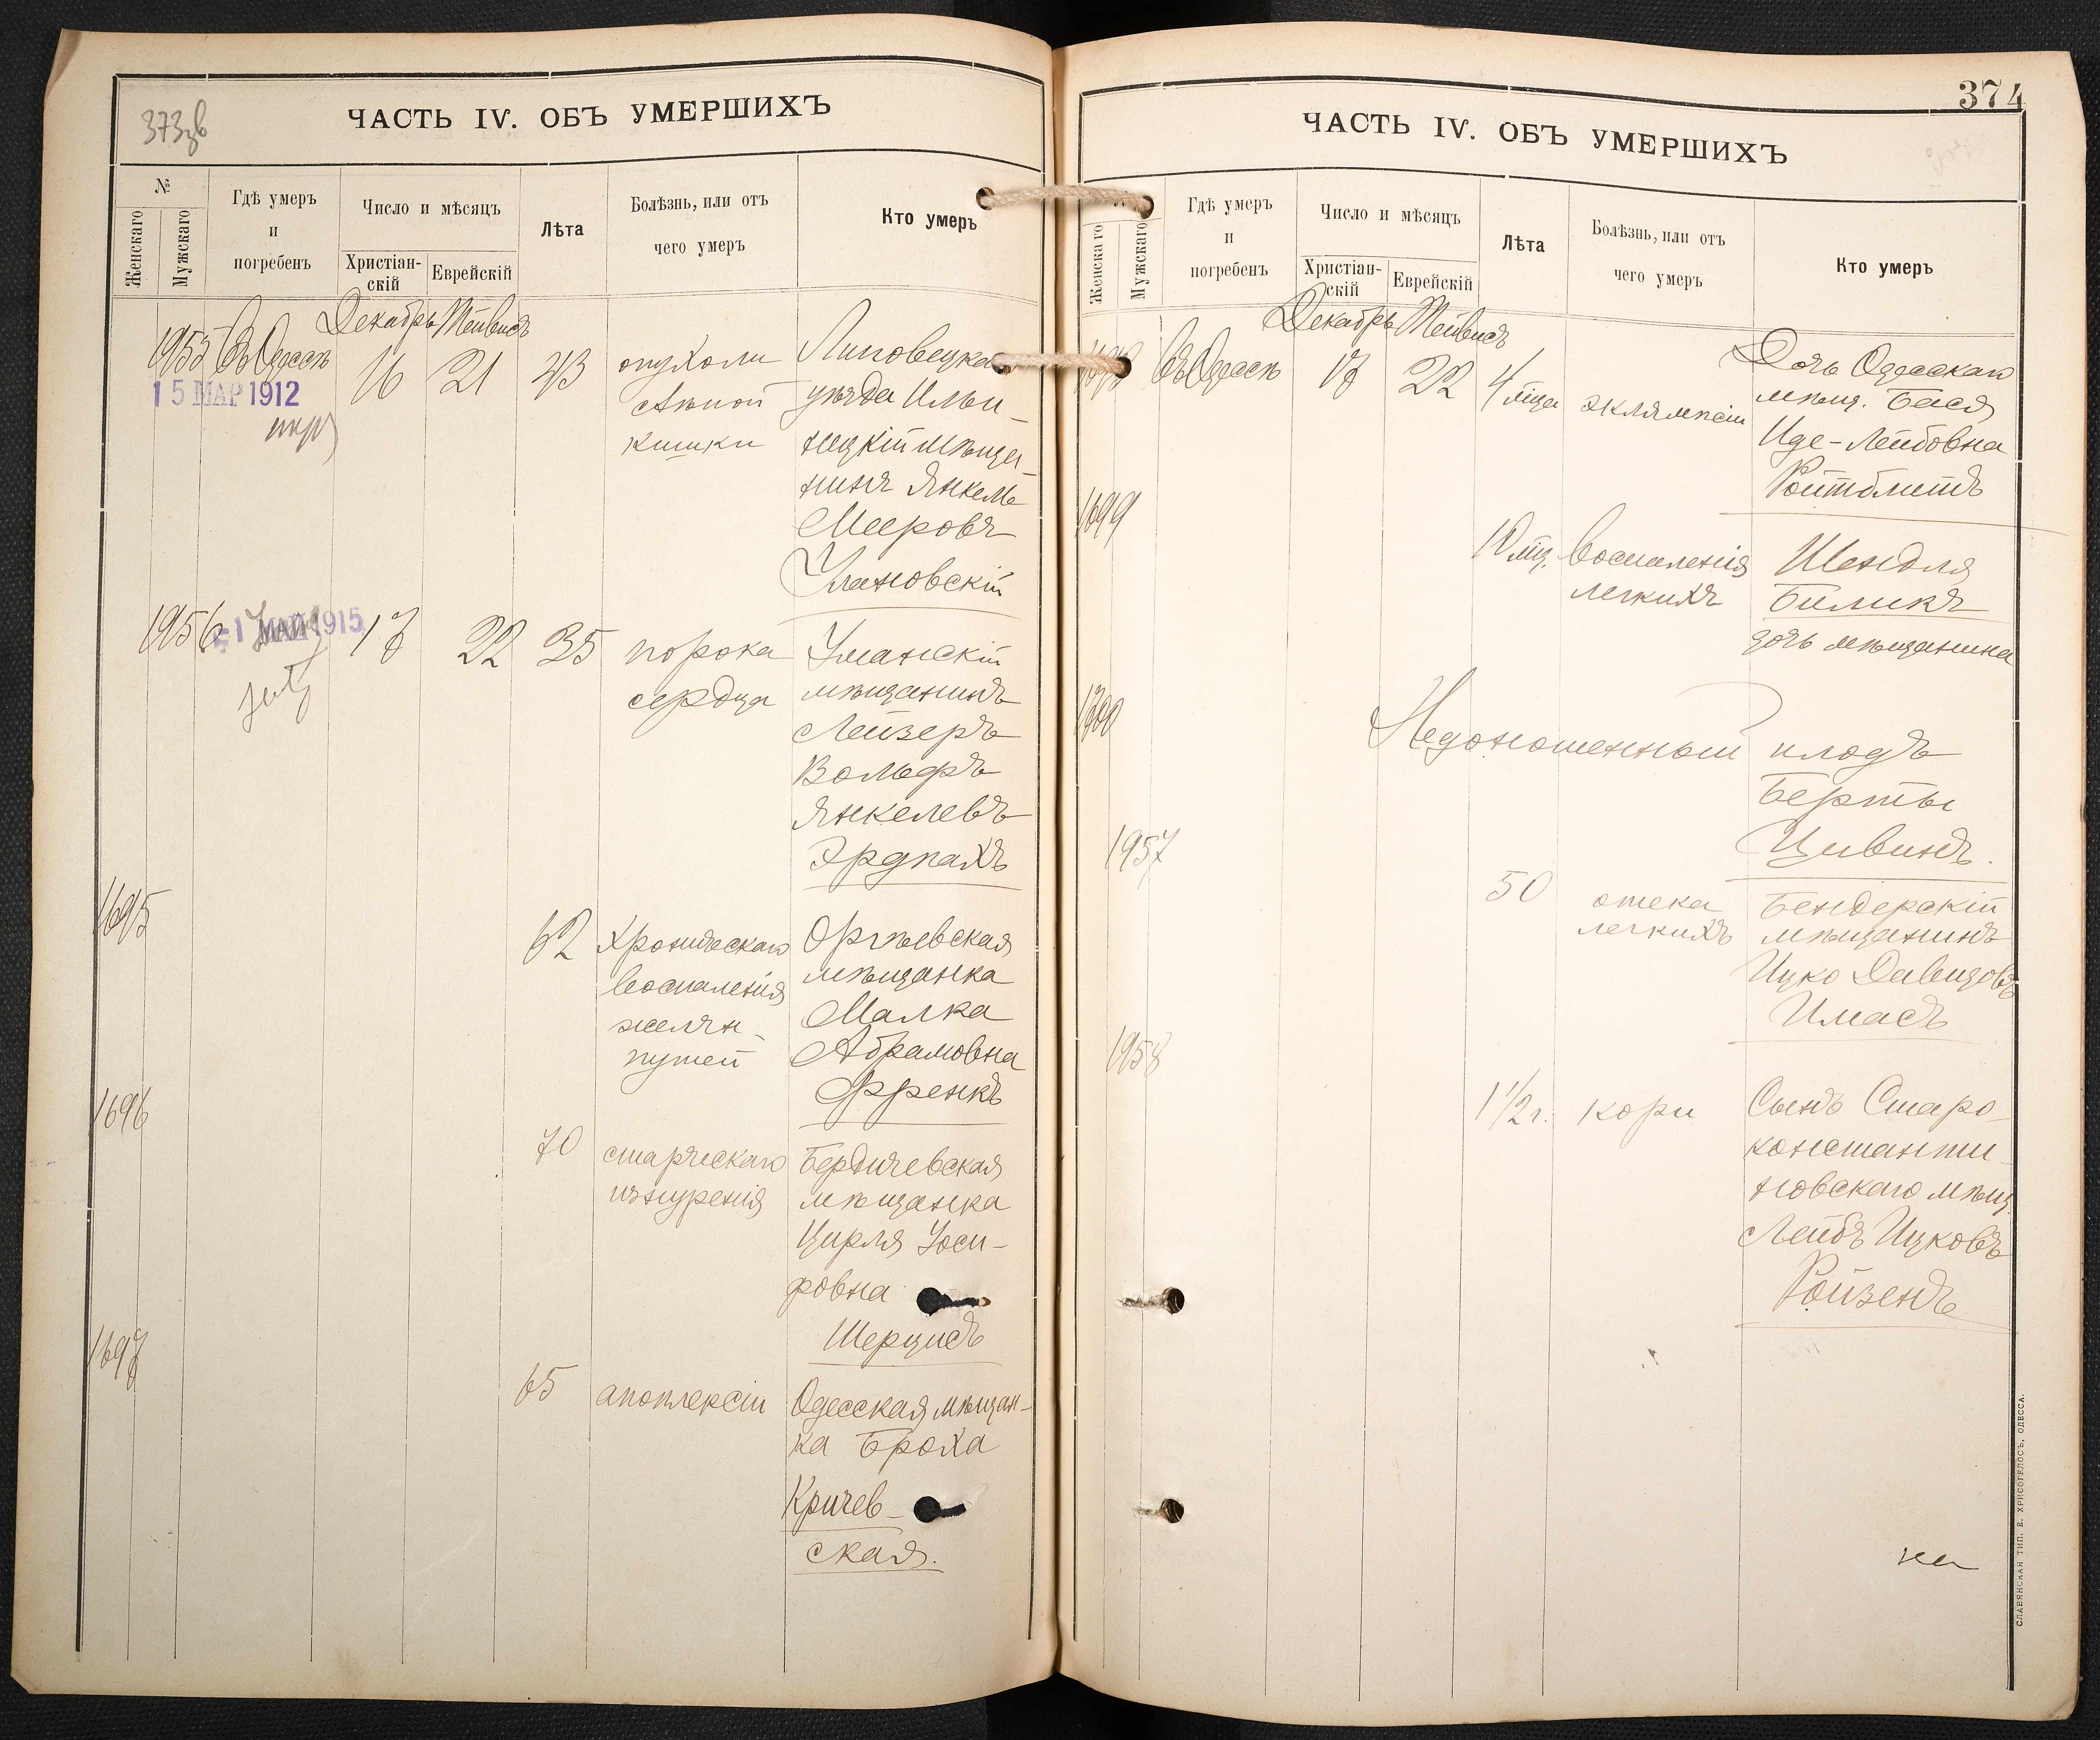 373об
ЧАСТЬ IV. ОБЪ УМЕРШИХЪ
№
Женскаго
Мужскаго
Гдѣ умеръ
и
погребенъ
Число и мѣсяцъ
Христіан-
скій
Еврейскій
Лѣта
Болѣзнь, или отъ
чего умеръ
Кто умеръ
Декабрь Тейвисъ
1955 Въ Одессѣ 16 21 43 опухоли
слѣпой
кишки
Липовецкаго
уѣзда Ильи-
нецкій мѣща-
нинъ Янкель
Мееровъ
Улановскій
15 МАР 1912
1956 17 22 35 порока
сердца
Уманскій
мѣщанинъ
Лейзеръ
Вольфъ
Янкелевъ
Эрдпахъ
1 МАЙ 1915
1695 62 Хроническаго
воспаленія
желчн-
путей
Оргѣевская
мѣщанка
Малка
Абрамовна
Френкъ
1696 70 старческаго
изнуренія
Бердичевская
мѣщанка
Цирля Іоси-
фовна
Шерцисъ
1697 65 апоплексіи
Одесская мѣщан-
ка Броха
Кричев-
ская.
374
ЧАСТЬ IV. ОБЪ УМЕРШИХЪ
Женскаго
Мужскаго
Гдѣ умеръ
и
погребенъ
Число и мѣсяцъ
Христіан-
скій
Еврейскій
Лѣта
Болѣзнь, или отъ
чего умеръ
Кто умеръ
Декабрь Тейвисъ
1698 Въ Одессѣ 17 22 4 мѣс. эклямпсіи
Дочь Одесскаго
мѣщ. Бася
Иде-Лейбовна
Ройтблитъ
1699 10 мѣс. воспаленія
легкихъ
Шендля
Биликъ
дочь мѣщанина
1700 Недоношенный плодъ
Берты
Цивинъ.
1957 50 отека
легкихъ
Бендерскій
мѣщанинъ
Ицко Давидовъ
Имасъ
1958 1 1/2 г. кори
Сынъ Старо-
константи-
новскаго мѣщ.
Лейбъ Ицковъ
Ройзенъ
СЛАВЯНСКАЯ ТИП. Е. ХРИСОГЕЛОСЪ, ОДЕССА.